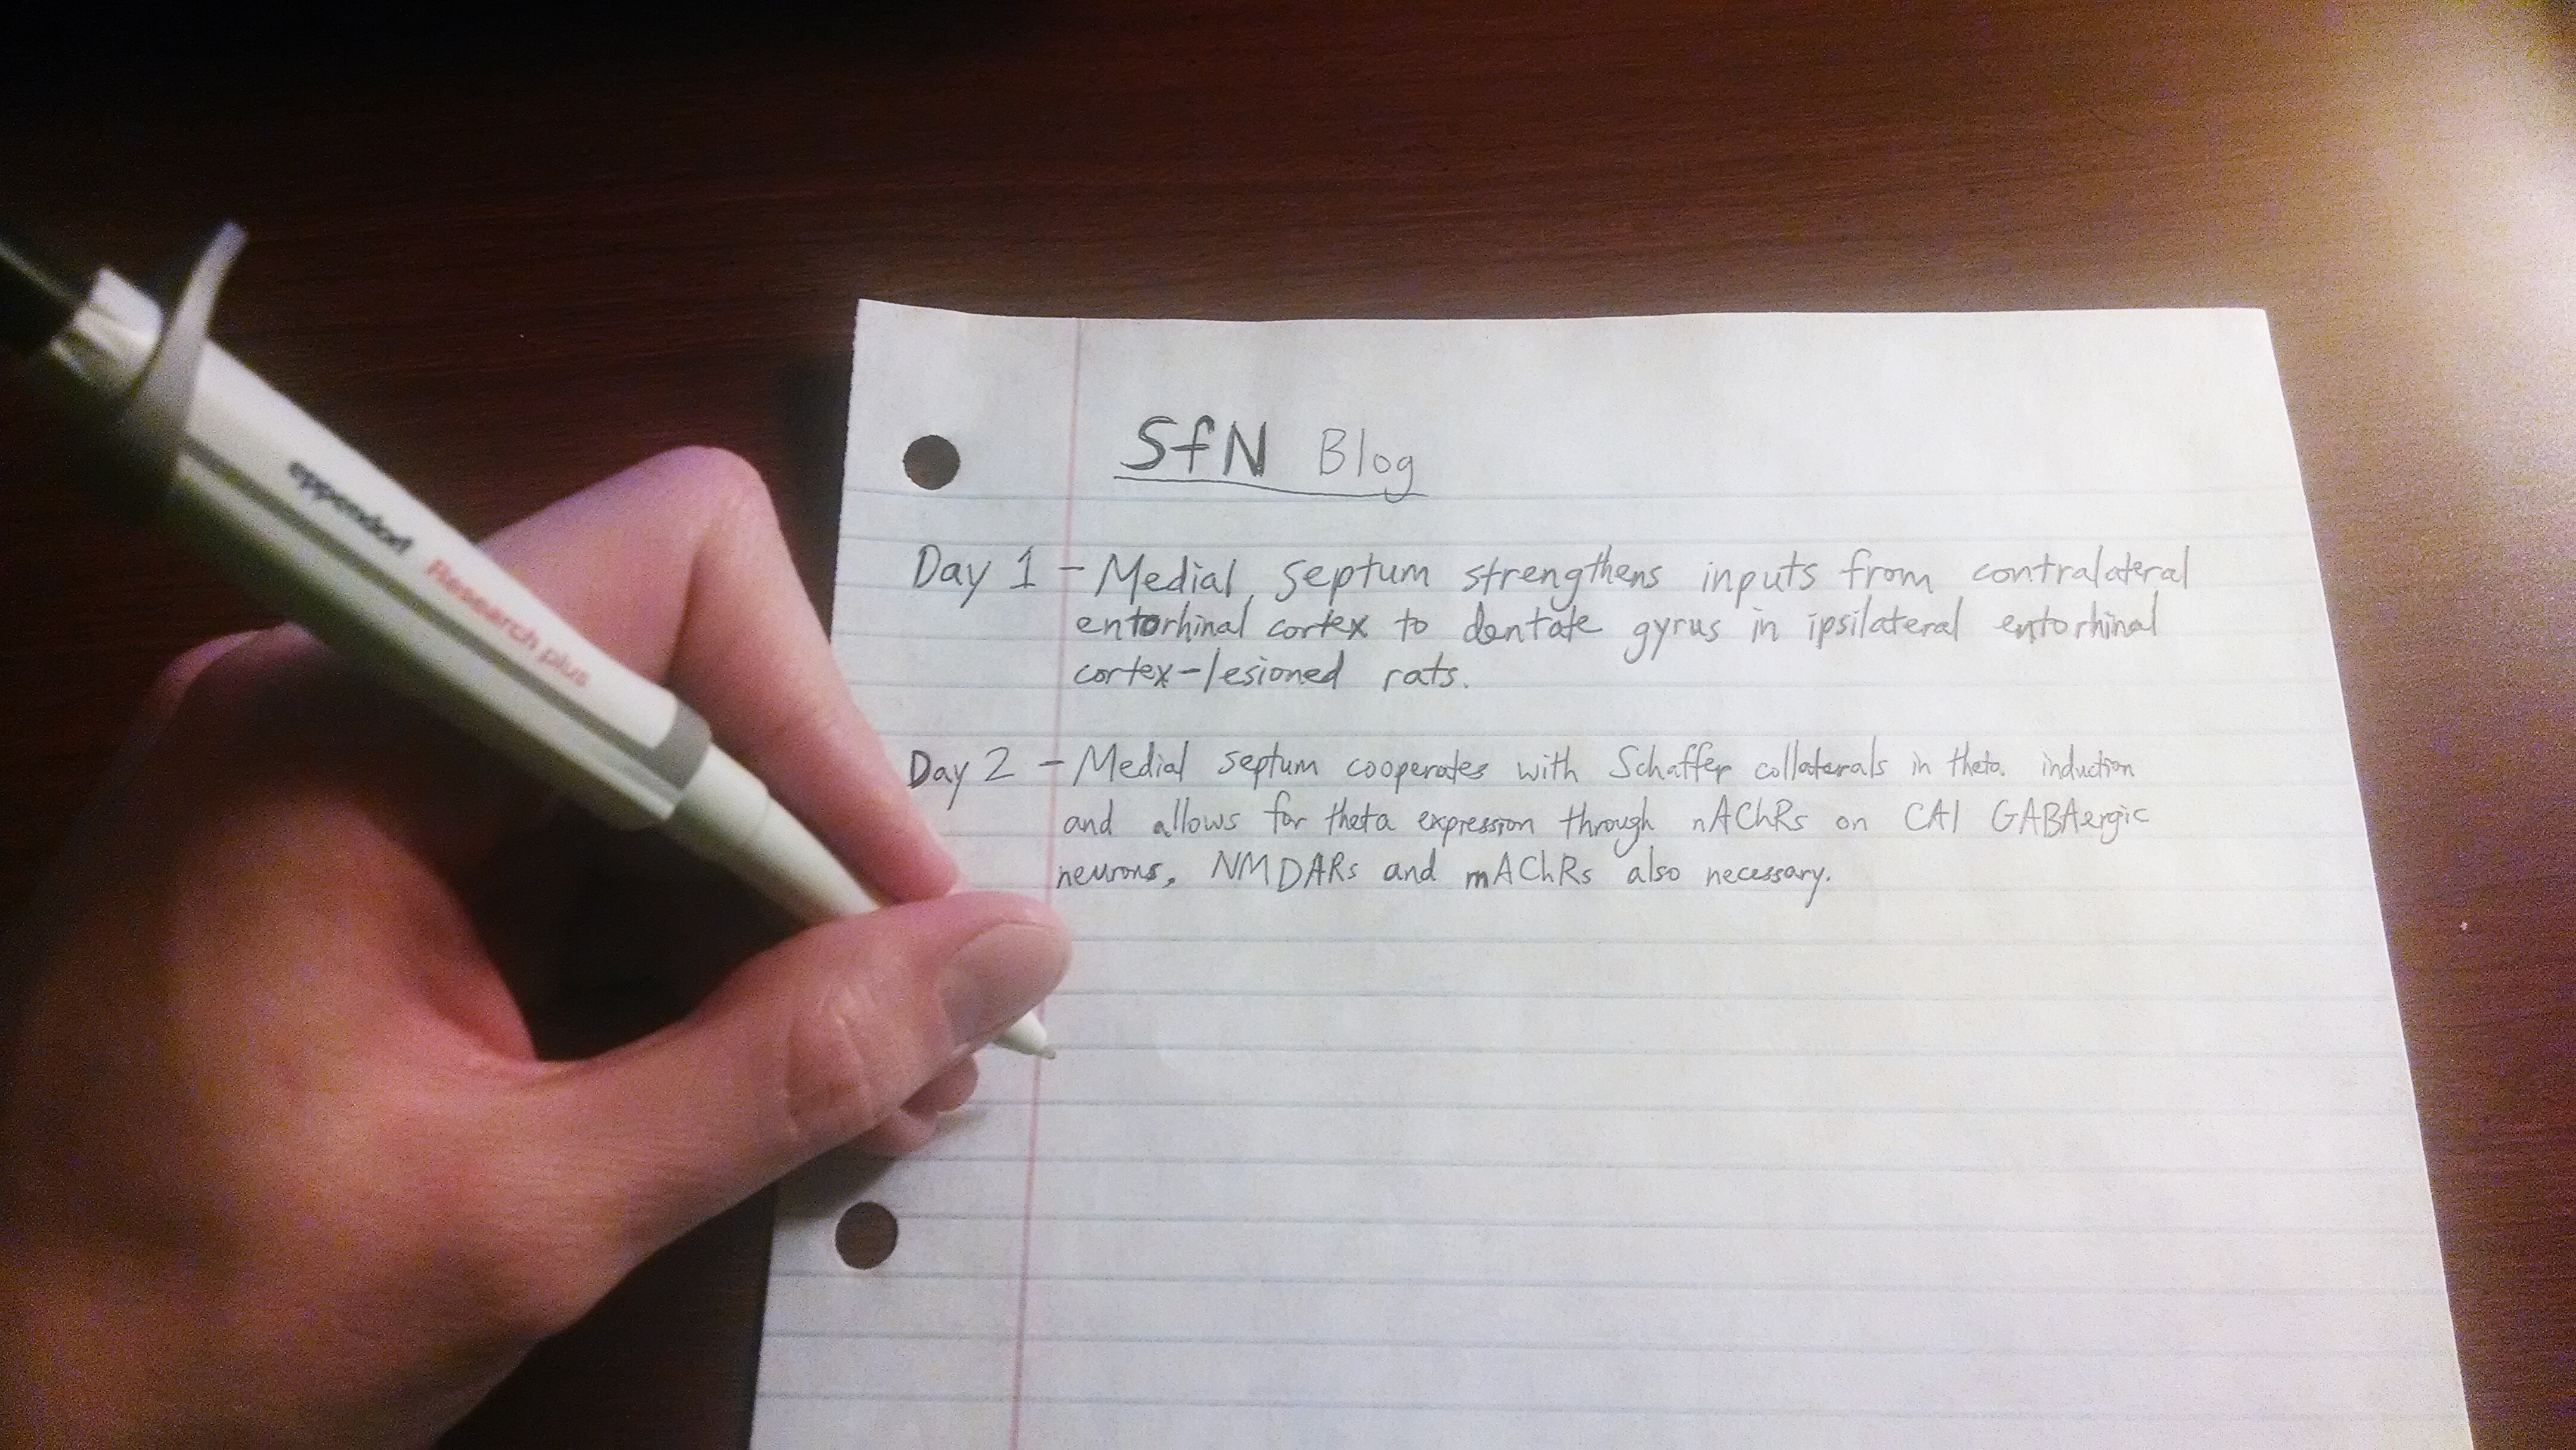 eppendorf Research plus
SfN Blog
Day 1 - Medial septum strengthens inputs from contralateral
entorhinal cortex to dentate gyrus in ipsilateral entorhinal
cortex-lesioned rats.
Day 2 - Medial septum cooperates with Schaffer collaterals in theta induction
and allows for theta expression through nAChRs on CA1 GABAergic
neurons, NMDARs and mAChRs also necessary.